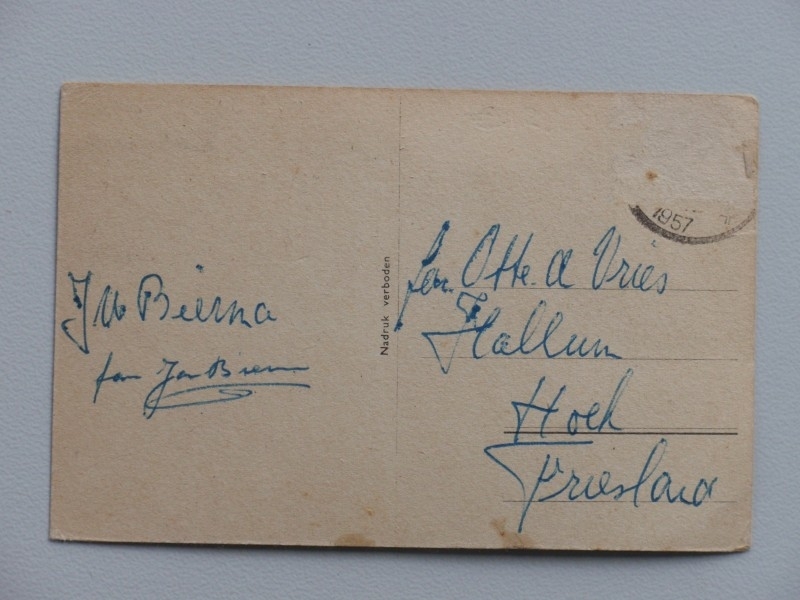 Bierma
fam
Nadruk verboden
1957
fam. Otte. d Vries
Hallum
Hoek
Friesland